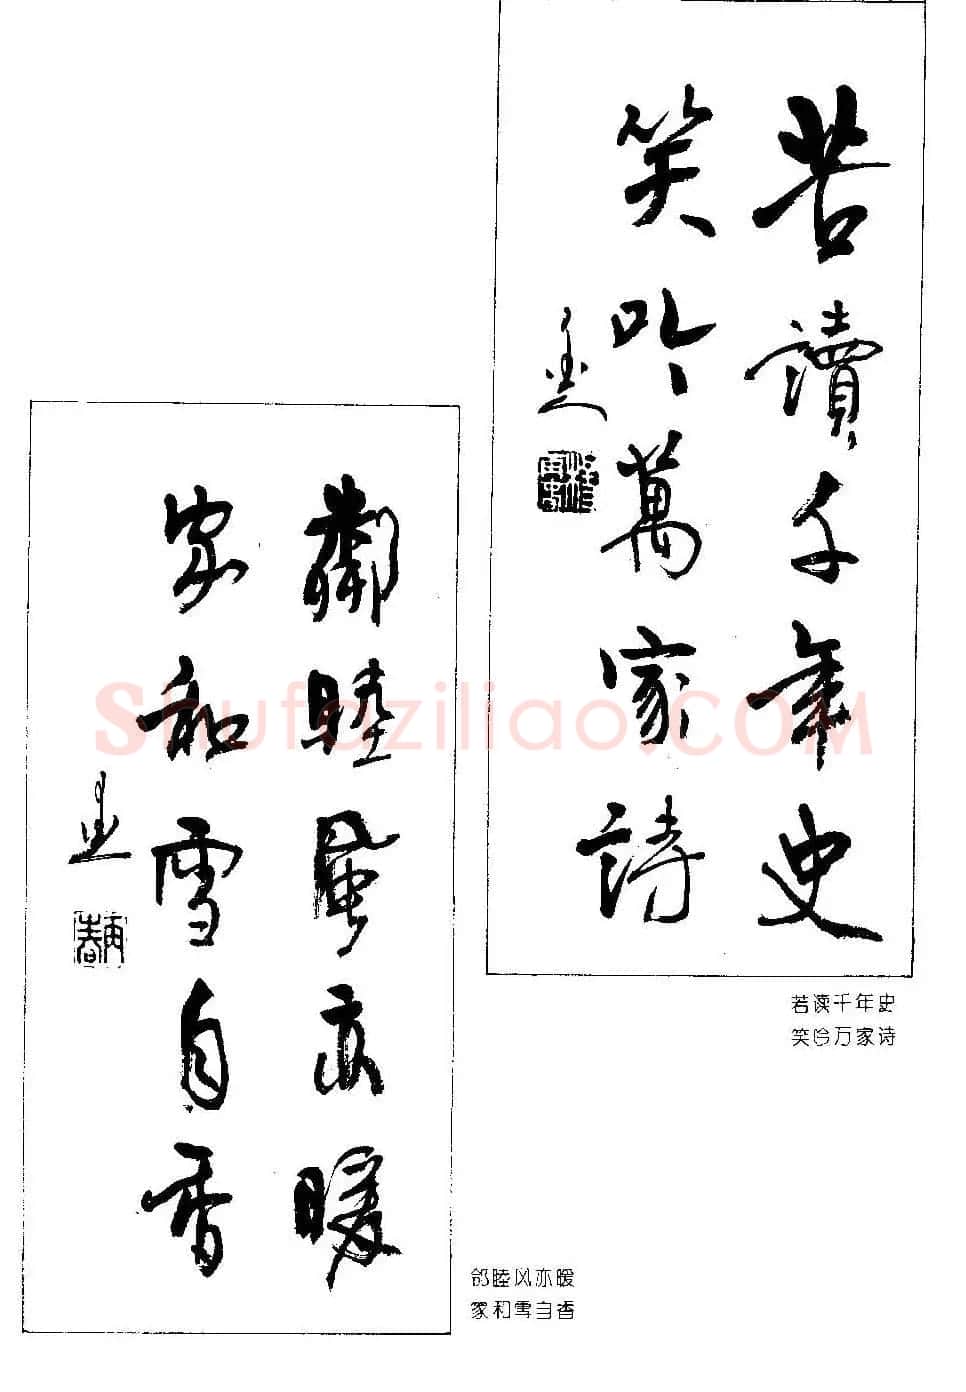 苦讀千年史
笑吟萬家詩
若读千年史
笑吟万家诗
鄰睦風亦暖
家和雪自香
邻睦风亦暖
家和雪自香
Shufaziliao.COM